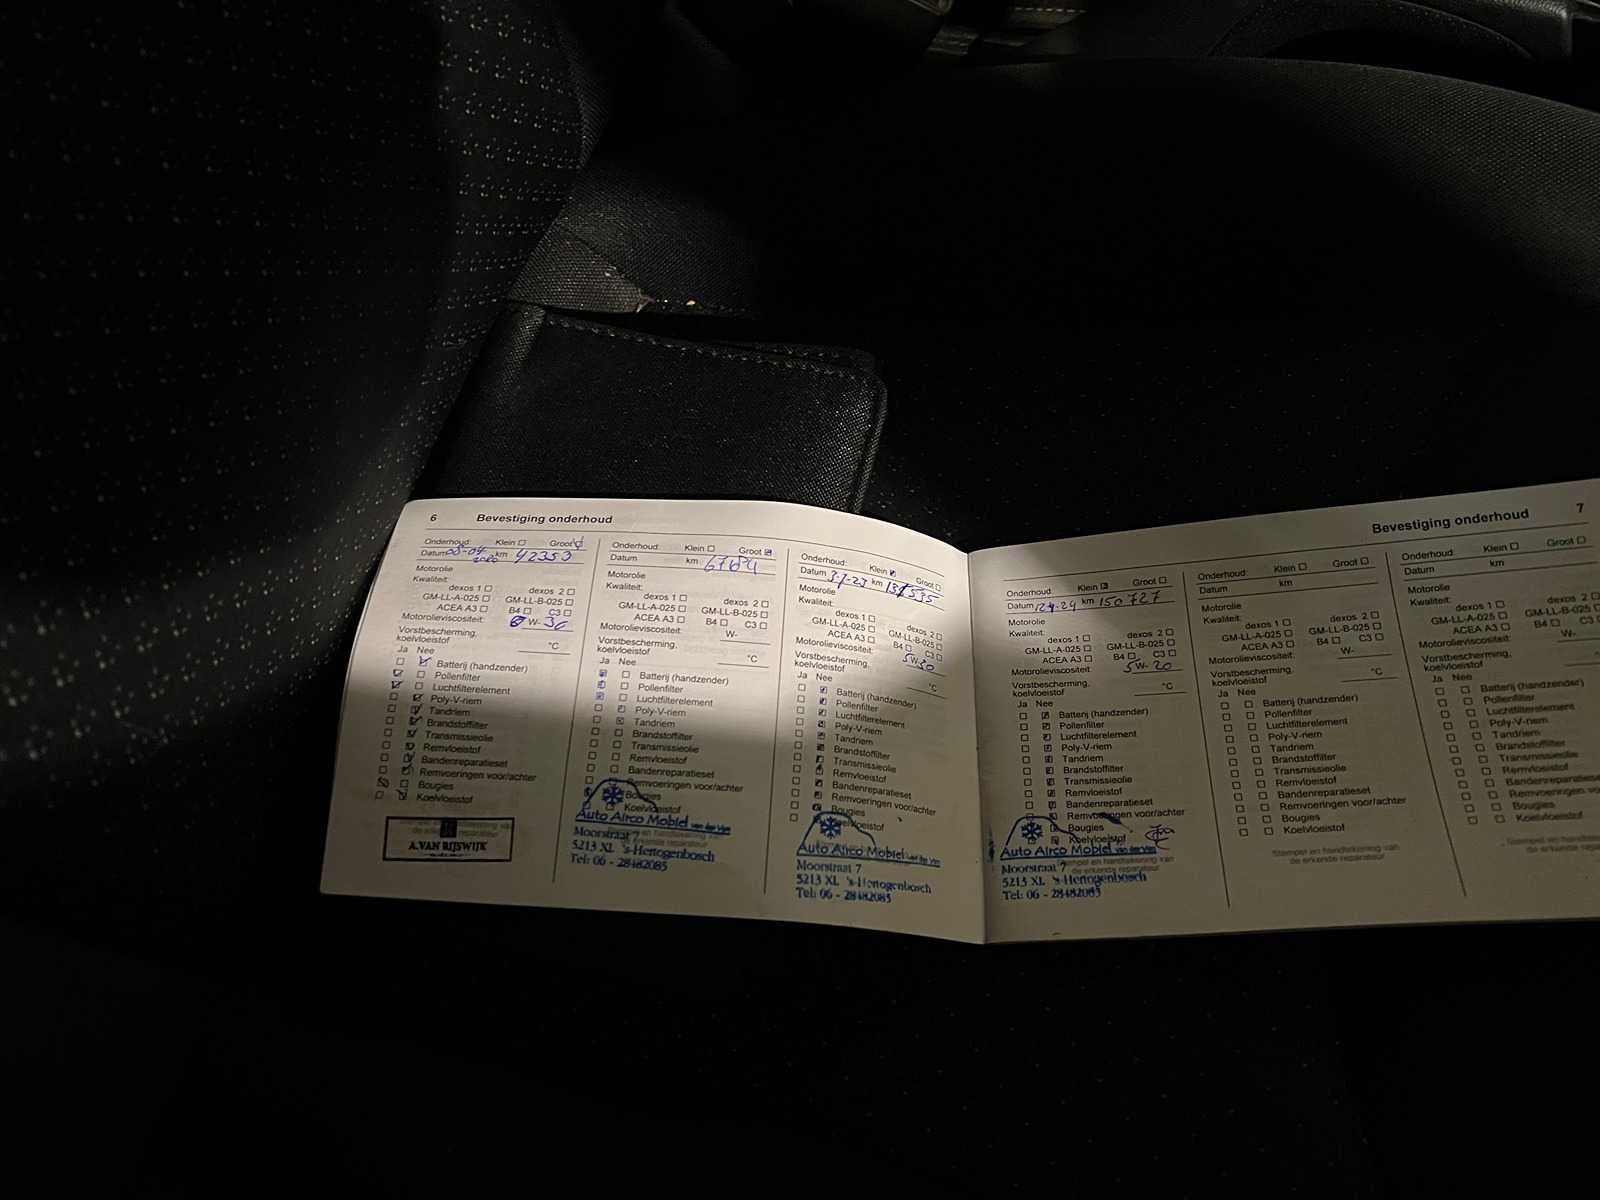 6 Bevestiging onderhoud
Onderhoud: Klein Groot
Datum 08-04 2020 km 42353
Motorolie
Kwaliteit:
dexos 1 dexos 2
GM-LL-A-025 GM-LL-B-025
ACEA A3 B4 C3
Motorolieviscositeit: W-30
Vorstbescherming,
koelvloeistof °C
Ja Nee
Batterij (handzender)
Pollenfilter
Luchtfilterelement
Poly-V-riem
Tandriem
Brandstoffilter
Transmissieolie
Remvloeistof
Bandenreparatieset
Remvoeringen voor/achter
Bougies
Koelvloeistof
A.VAN RIJSWIJK
Onderhoud: Klein Groot
Datum km
Motorolie
Kwaliteit:
dexos 1 dexos 2
GM-LL-A-025 GM-LL-B-025
ACEA A3 B4 C3
Motorolieviscositeit: W-
Vorstbescherming,
koelvloeistof °C
Ja Nee
Batterij (handzender)
Pollenfilter
Luchtfilterelement
Poly-V-riem
Tandriem
Brandstoffilter
Transmissieolie
Remvloeistof
Bandenreparatieset
Remvoeringen voor/achter
Bougies
Koelvloeistof
Auto Airco Mobiel van der Ven
Moorstraat 7
5213 XL 's-Hertogenbosch
Tel: 06 - 28482085
Onderhoud: Klein Groot
Datum 3-7-23 km 131535
Motorolie
Kwaliteit:
dexos 1 dexos 2
GM-LL-A-025 GM-LL-B-025
ACEA A3 B4 C3
Motorolieviscositeit: 5W-20
Vorstbescherming,
koelvloeistof °C
Ja Nee
Batterij (handzender)
Pollenfilter
Luchtfilterelement
Poly-V-riem
Tandriem
Brandstoffilter
Transmissieolie
Remvloeistof
Bandenreparatieset
Remvoeringen voor/achter
Bougies
Koelvloeistof
Auto Airco Mobiel van der Ven
Moorstraat 7
5213 XL 's-Hertogenbosch
Tel: 06 - 28482085
Bevestiging onderhoud 7
Onderhoud: Klein Groot
Datum km 150727
Motorolie
Kwaliteit:
dexos 1 dexos 2
GM-LL-A-025 GM-LL-B-025
ACEA A3 B4 C3
Motorolieviscositeit: 5W-20
Vorstbescherming,
koelvloeistof °C
Ja Nee
Batterij (handzender)
Pollenfilter
Luchtfilterelement
Poly-V-riem
Tandriem
Brandstoffilter
Transmissieolie
Remvloeistof
Bandenreparatieset
Remvoeringen voor/achter
Bougies
Koelvloeistof
Stempel en handtekening van
de erkende reparateur
Auto Airco Mobiel van der Ven
Moorstraat 7
5213 XL 's-Hertogenbosch
Tel: 06 - 28482085
Onderhoud: Klein Groot
Datum km
Motorolie
Kwaliteit:
dexos 1 dexos 2
GM-LL-A-025 GM-LL-B-025
ACEA A3 B4 C3
Motorolieviscositeit: W-
Vorstbescherming,
koelvloeistof °C
Ja Nee
Batterij (handzender)
Pollenfilter
Luchtfilterelement
Poly-V-riem
Tandriem
Brandstoffilter
Transmissieolie
Remvloeistof
Bandenreparatieset
Remvoeringen voor/achter
Bougies
Koelvloeistof
Stempel en handtekening van
de erkende reparateur
Onderhoud: Klein Groot
Datum km
Motorolie
Kwaliteit:
dexos 1 dexos 2
GM-LL-A-025 GM-LL-B-025
ACEA A3 B4 C3
Motorolieviscositeit: W-
Vorstbescherming,
koelvloeistof
Ja Nee
Batterij (handzender)
Pollenfilter
Luchtfilterelement
Poly-V-riem
Tandriem
Brandstoffilter
Transmissieolie
Remvloeistof
Bandenreparatieset
Remvoeringen
Bougies
Koelvloeistof
Stempel en handtekening van
de erkende